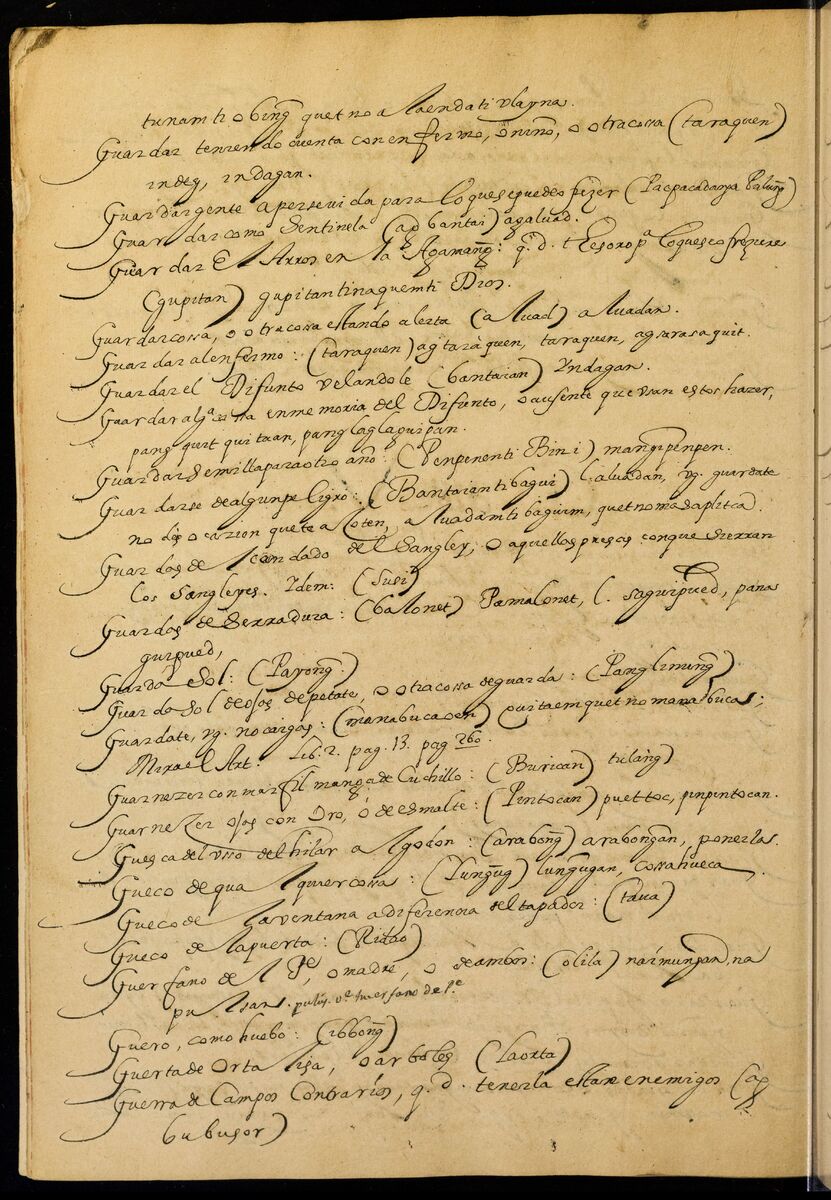 tunamti obing quet no a laendati ulayna.
Guardar teniendo cuenta con enfermo, o niño, o otra cossa (taraquen)
indeg, indagan.
Guardar gente apersevida para lo que se puede ofrezer (Pacpacadanga
Guardar como Sentinela (ag bantai) agaluad.
Guardar El Arros en la Agamang: q.d. tesoro pª lo que se ofreziere
(gupitan) gupitantinaquemti Dios.
Guardar cossa, o otra cossa estando alerta (aluad) aluadan.
Guardar al enfermo: (taraquen) agtaraquen, taraquen, agsarasaquit.
Guardar el Difunto velandole (bantaian) Yndagan.
Guardar algª na en memoria del Difunto, o ausente que usan estos hazer,
pang quit quitaan, panglaglaguipan.
Guardar Semilla para otro año: (Penpenenti Bini) mangipenpen.
Guardarse de algun peligro: (Bantaiantibagui) l. aluadan, vg. guardate
no des ocazion que te asoten, aluadamti baguim, quet no masaplitca.
Guardas de l candado del Sangley, o aquellos presos con que sierran
los sangleyes. Ydem: (susi)
Guardas de Serradura: (balonet) Pamalonet, l. saguipued, pana
guipued,
Guarda Sol: (Payong)
Guarda Sol de ojos de petate, o otra cossa de guarda: (Panglinung)
Guardate, vg. no caigas: (manabucaoen) quitaem quet no manabucas;
Mira el Art. Lib. 2. pag. 13. pag 260.
Guarnezer con marfil manga de Cuchillo: (Burican) tulang)
Guarnezer ojas con Oro, ó de esmalte: (Pintocan) puettoc, pinpintocan.
Guesca del usso del hilar Algodon: (arabong) arabongan, ponerlas.
Gueco de qua lquier cossa: (Lungug) lungugan, cossa hueca.
Gueco de la ventana a diferencia del tapador: (taua)
Gueco de la puerta: (Ridao)
Guerfano de l Pe, o madre, o de ambos: (olila) naimungan, na
pulsan.
Guero, como huebo: (ibbong)
Guerta de Ortaliza, o arboles (Laorta)
Guerra de Campos Contrarios, q.d. tenerla estar enemigos (ag
bubusor)